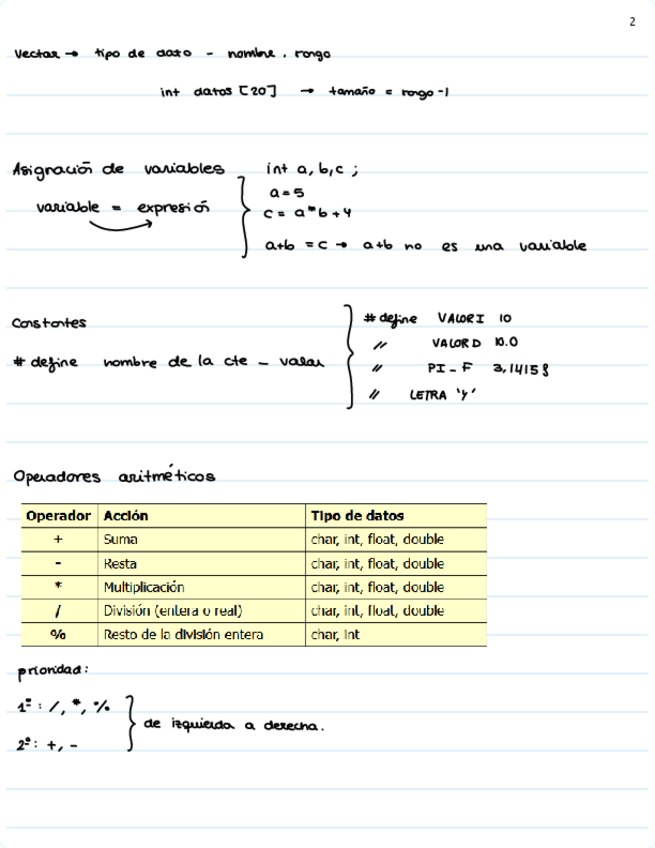 2
Vector → tipo de dato - nombre, rango
int datos [20] → tamaño = rango -1
Asignación de variables int a, b, c ;
a = 5
variable = expresión
c = a*b+4
a+b = c → a+b no es una variable
Constantes
# define VALORI 10
# define nombre de la cte - valor
// VALORD 10.0
// PI_F 3,1415f
// LETRA 'y'
Operadores aritméticos
Operador Acción Tipo de datos
+ Suma char, int, float, double
- Resta char, int, float, double
* Multiplicación char, int, float, double
/ División (entera o real) char, int, float, double
% Resto de la división entera char, int
prioridad:
1º: /, *, %
de izquierda a derecha.
2º: +, -